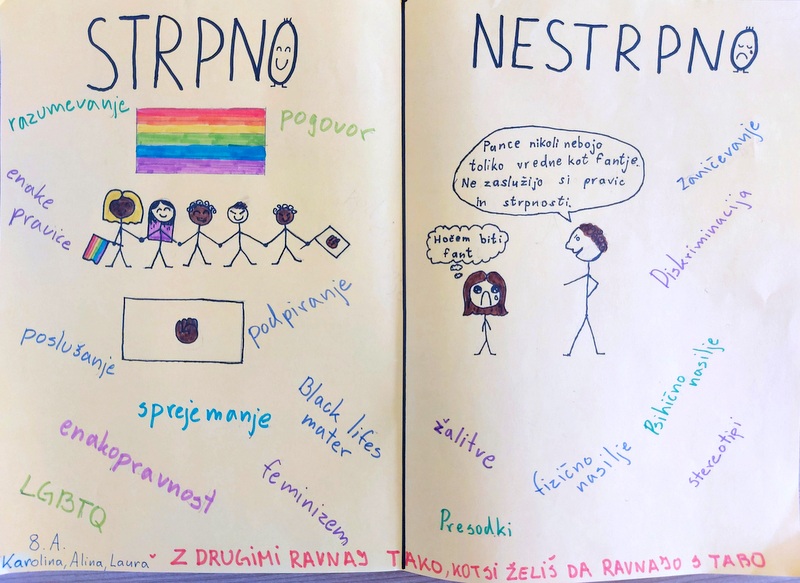 STRPNO
razumevanje
pogovor
enake
pravice
poslušanje
podpiranje
sprejemanje
Black lifes
mater
enakopravnost
feminizem
LGBTQ
8. A.
Karolina, Alina, Laura
NESTRPNO
Pance nikoli nebojo
toliko vredne kot fantje.
Ne zaslužijo si pravic
in strpnosti.
Hočem biti
fant
Zaničevanje
Diskriminacija
Psihično
nasilje
žalitve
fizično
nasilje
stereotipi
Presodki
Z DRUGIMI RAVNAJ TAKO, KOT SI ŽELIŠ DA RAVNAJO S TABO